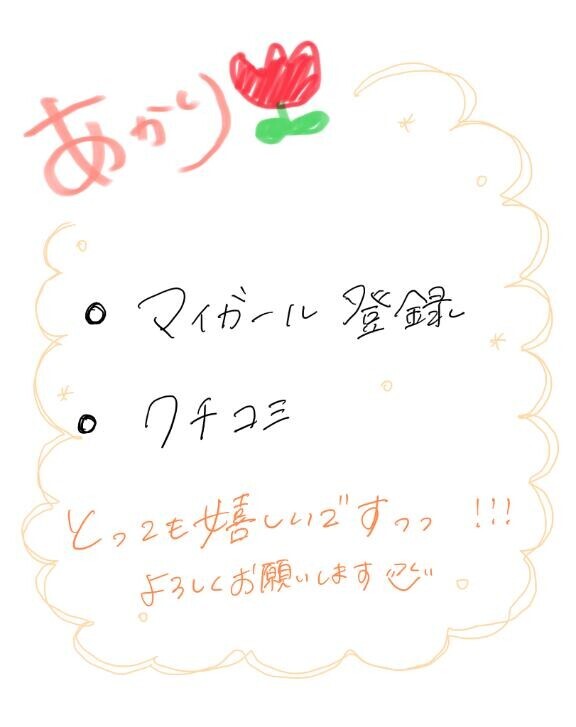 あかり
• マイガール 登録
• クチコミ
とっても嬉しいですっっ !!!
よろしくお願いします